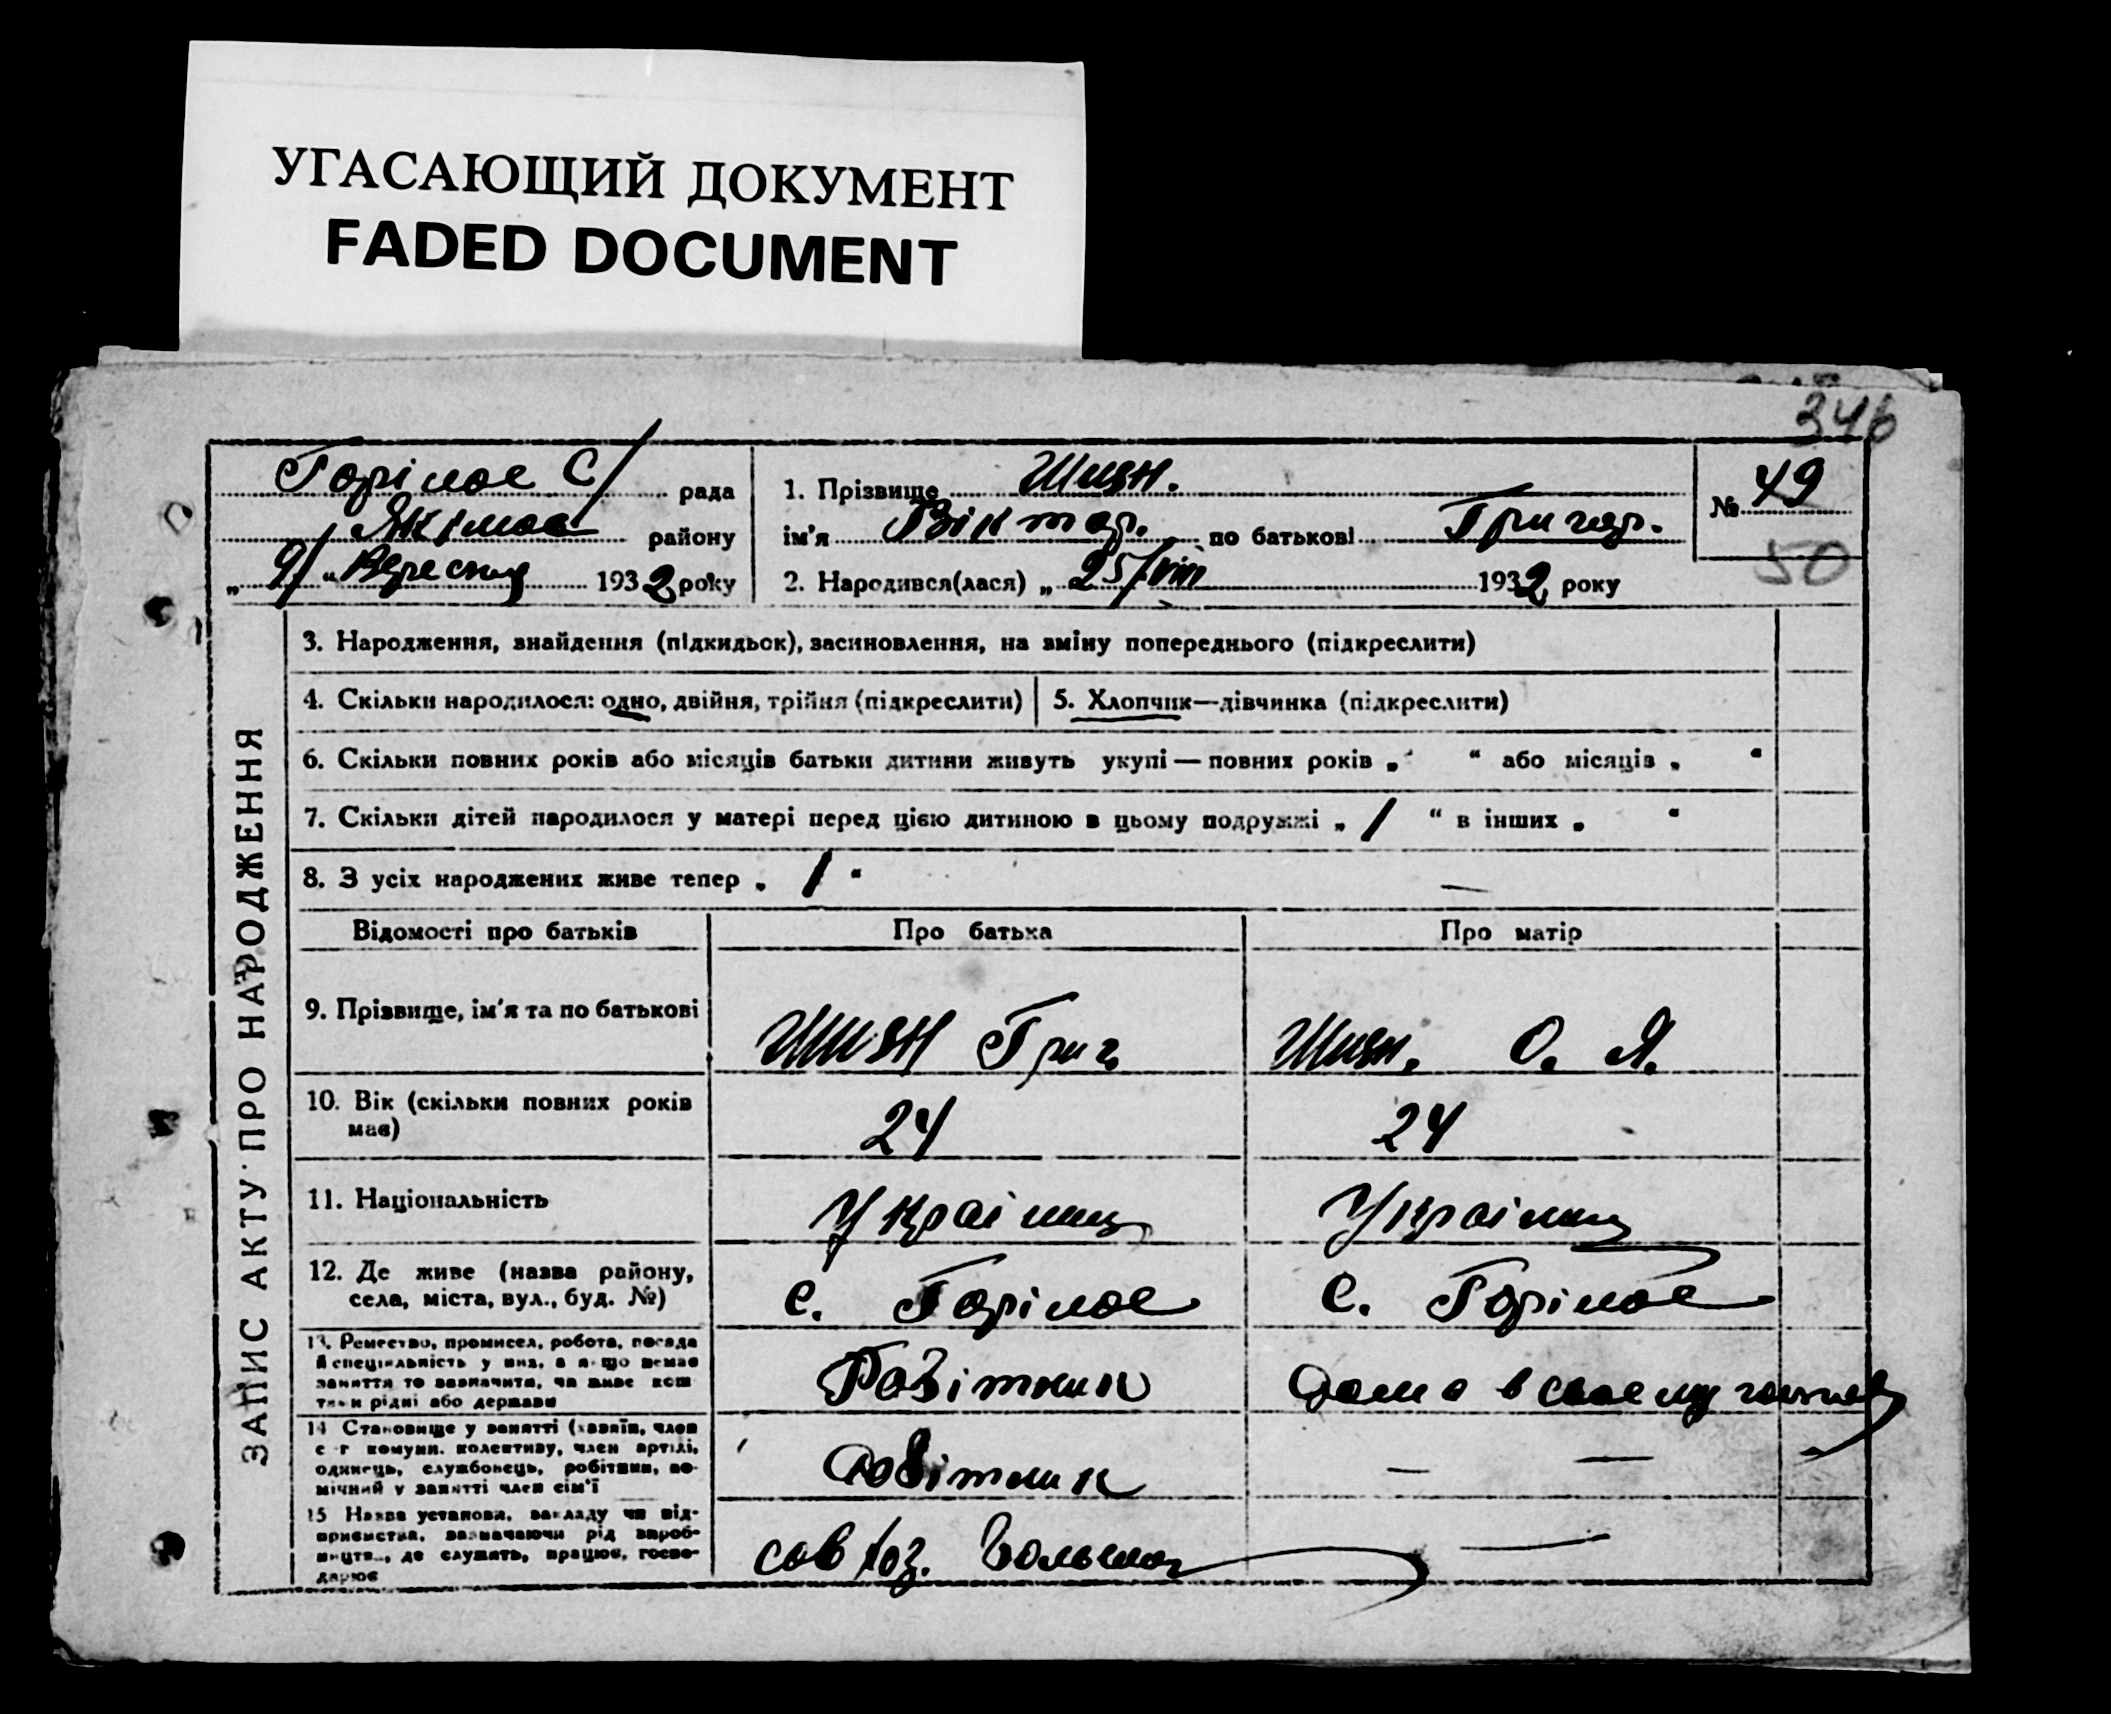 УГАСАЮЩИЙ ДОКУМЕНТ
FADED DOCUMENT
346
Горілое С/ рада
Якімов району
„ 9/ “ Вересня 1932 року
1. Прізвище Шиян.
ім'я Віктор. по батькові Григор.
2. Народився(лася) „ 25/VIII 1932 року
№ 49
50
ЗАПИС АКТУ ПРО НАРОДЖЕННЯ
3. Народження, знайдення (підкидьок), засиновлення, на зміну попереднього (підкреслити)
4. Скільки народилося: одно, двійня, трійня (підкреслити)
5. Хлопчик—дівчинка (підкреслити)
6. Скільки повних років або місяців батьки дитини живуть укупі — повних років „ “ або місяців „ “
7. Скільки дітей народилося у матері перед цією дитиною в цьому подружжі „ 1 “ в інших „ “
8. З усіх народжених живе тепер „ 1 “ —
Відомості про батьків Про батька Про матір
9. Прізвище, ім'я та по батькові Шиян Григ Шиян. О. Я.
10. Вік (скільки повних років має) 24 24
11. Національність Українц Українц
12. Де живе (назва району,
села, міста, вул., буд. №) с. Горілое с. Горілое
13. Ремество, промисел, робота, посада
й спеціяльність у них, а якщо немає
заняття то зазначити, чи живе кош
тами рідні або держави
Робітник Дома в своему
14 Становище у занятті (хазяїн, член
с г комуни. колективу, член артілі,
одинець, службовець, робітник, по-
мічний у занятті член сім'ї
робітник — —
15 Назва установи, закладу чи під-
приємства, зазначаючи рід вироб-
ництв.., де служить, працює, госпо-
дарює
совхоз. —